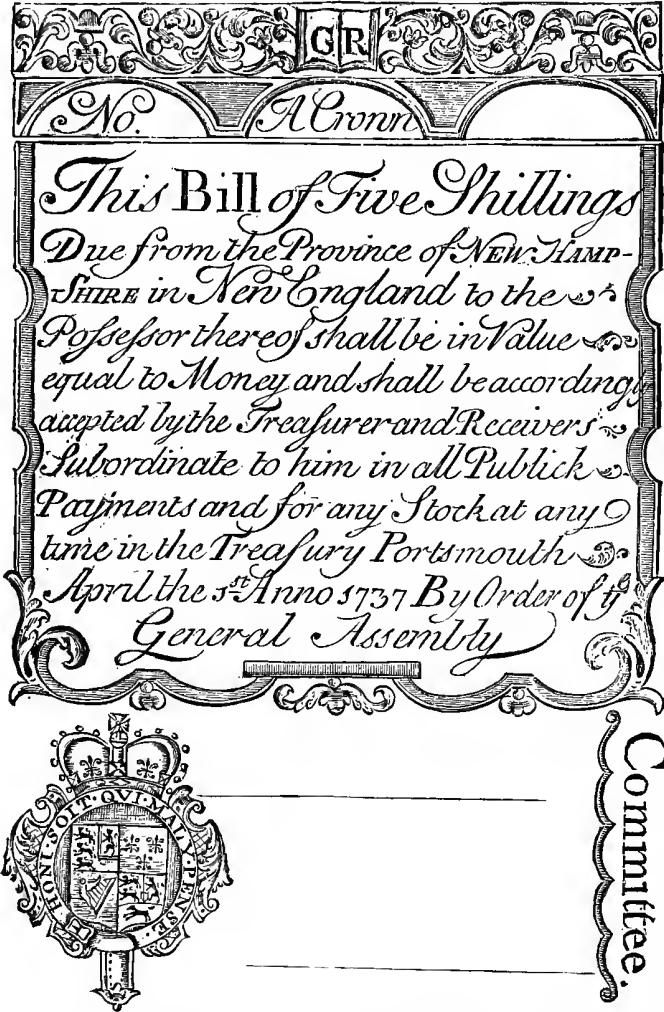 GR
No. A Crown
This Bill of Five Shillings
Due from the Province of NEW HAMP-
SHIRE in New England to the
Poſseſsor thereof shall be in Value
equal to Money and shall be accordingly
accepted by the Treaſurer and Receivers
Subordinate to him in all Publick
Payments and for any Stock at any
time in the Treaſury Portsmouth
April the 1st Anno 1737 By Order of ye
General Assembly
HONI·SOIT·QVI·MAL·Y·PENSE·
Committee.